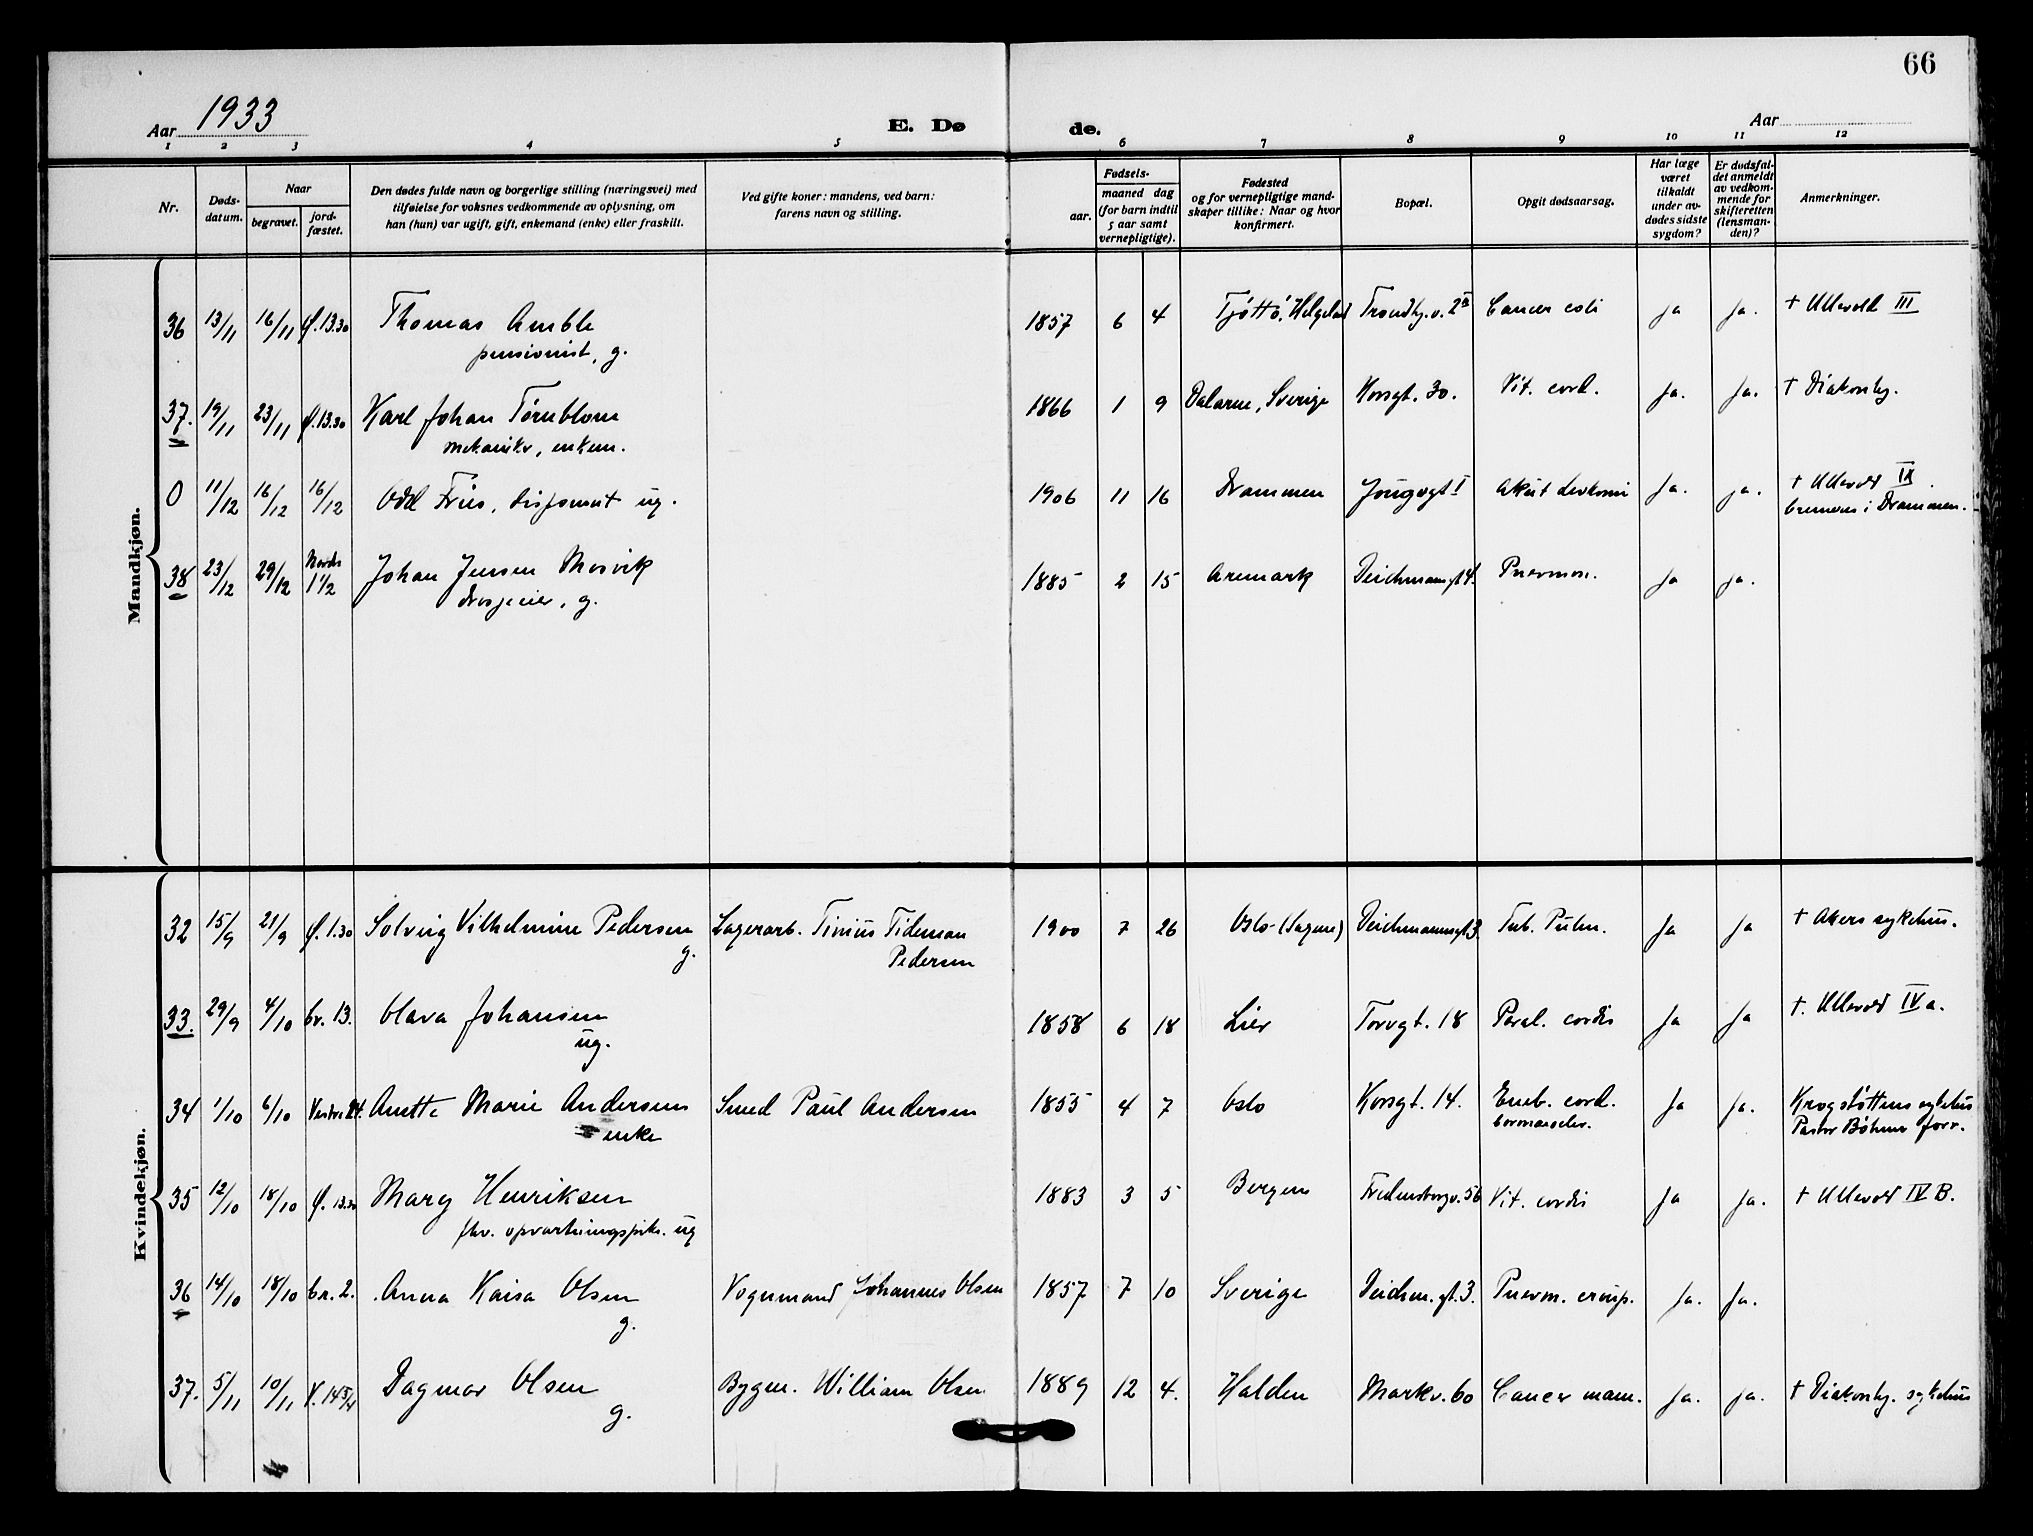 66
Aar 1933
E. Dø de.
Aar
1 2 3 4 5 6 7 8 9 10 11 12
Nr.
Døds-
datum.
Naar
begravet.
jord-
fæstet.
Den dødes fulde navn og borgerlige stilling (næringsvei) med
tilføielse for voksnes vedkommende av oplysning, om
han (hun) var ugift, gift, enkemand (enke) eller fraskilt.
Ved gifte koner: mandens, ved barn:
farens navn og stilling.
Fødsels-
aar.
maaned dag
(for barn indtil
5 aar samt
vernepligtige).
Fødested
og for vernepligtige mand-
skaper tillike: Naar og hvor
konfirmert.
Bopæl.
Opgit dødsaarsag.
Har læge
været
tilkaldt
under av-
dødes sidste
sygdom?
Er dødsfal-
det anmeldt
av vedkom-
mende for
skifteretten
(lensman-
den)?
Anmerkninger.
Mandkjøn.
36 13/11 16/11 f.13.30 Thomas Amble 1857 6 4 Tjøttø, Helgeland Trondhj.v. 2 Cancer coli ja ja. + Ullevold III
pensionist, g.
37. 19/11 23/11 f.13.30 Karl Johan Törnblom 1866 1 9 Dalarne, Sverige Korsgt. 30. Vit. cord. ja. ja. + Diakonhj.
mekaniker, enkem.
0 11/12 16/12 16/12 Odd Friis, disponent ug. 1906 11 16 Drammen Akut ja. ja. + Ullevold IX
Cremeres i Drammen.
38 23/12 29/12 Nordre 1 1/2 Johan Jensen Mosvik 1885 2 15 Aremark Deichmansgt 4. Pnevmon. ja ja.
drosjeeier, g.
Kvindekjøn.
32 15/9 21/9 f. 1.30 Solveig Vilhelmine Pedersen Lagerarb. Tinius Tideman 1900 7 26 Oslo (Sagene) Deichmannsgt 3. Tub. Pulm. ja ja + Akers sykehus.
g. Pedersen
33. 29/9 4/10 br. 13. Olava Johansen 1858 6 18 Lier Torvgt. 18 Paral. cordis ja ja +. Ullevold IV a.
ug.
34 1/10 6/10 Anette Marie Andersen Smed Paul Andersen 1855 4 7 Oslo Korsgt. 14. Emb. cord. ja ja. Krogstøttens sykehus
enke Pastor Bøhmer forr.
35 12/10 18/10 f. 13.30 Mary Henriksen 1883 3 5 Bergen Fredensborgv. 56 Vit. cordis ja ja. + Ullevold IV B.
fhv. opvartningspike. ug
36 14/10 18/10 br. 2. Anna Kaisa Olsen Vognmand Johannes Olsen 1857 7 10 Sverige Deichm. gt. 3. Pnevm. crup. ja. ja.
g.
37. 5/11 10/11 V. 14 3/4 Dagmar Olsen Bygm. William Olsen 1889 12 4. Halden Markv. 60 Cancer mam. ja. ja. + Diakonhj. sykehus
g.